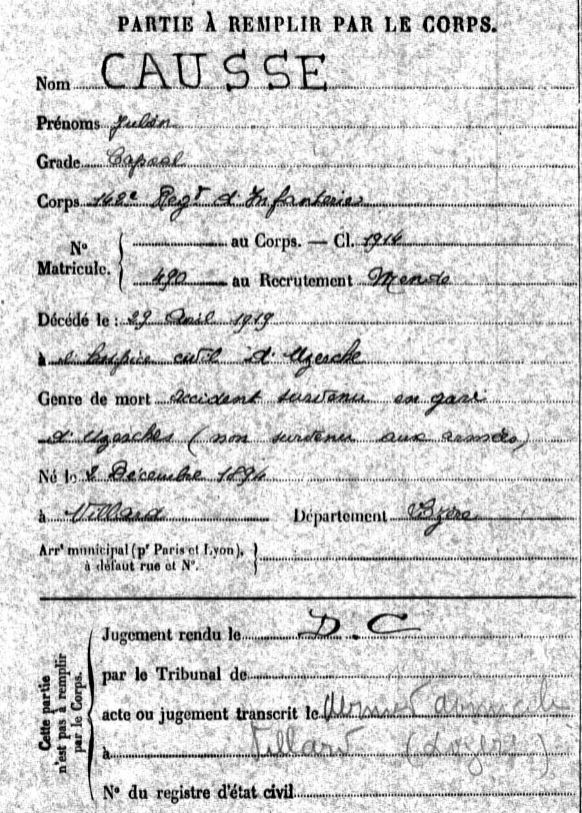 PARTIE À REMPLIR PAR LE CORPS.
Nom CAUSSE
Prénoms Julien
Grade Caporal
Corps 142e Regt d'Infanterie
N° Matricule. au Corps. — Cl. 1914
490 au Recrutement Mende
Décédé le : 29 Avril 1919
à l'hospice civil d'Uzerche
Genre de mort accident survenu en gare
d'Uzerches (non survenu aux armées)
Né le 2 Décembre 1894
à Villard Département
Arrt municipal (pr Paris et Lyon),
à défaut rue et N°.
Cette partie n'est pas à remplir par le Corps.
Jugement rendu le D.C
par le Tribunal de
acte ou jugement transcrit le domicile
à Villard
N° du registre d'état civil